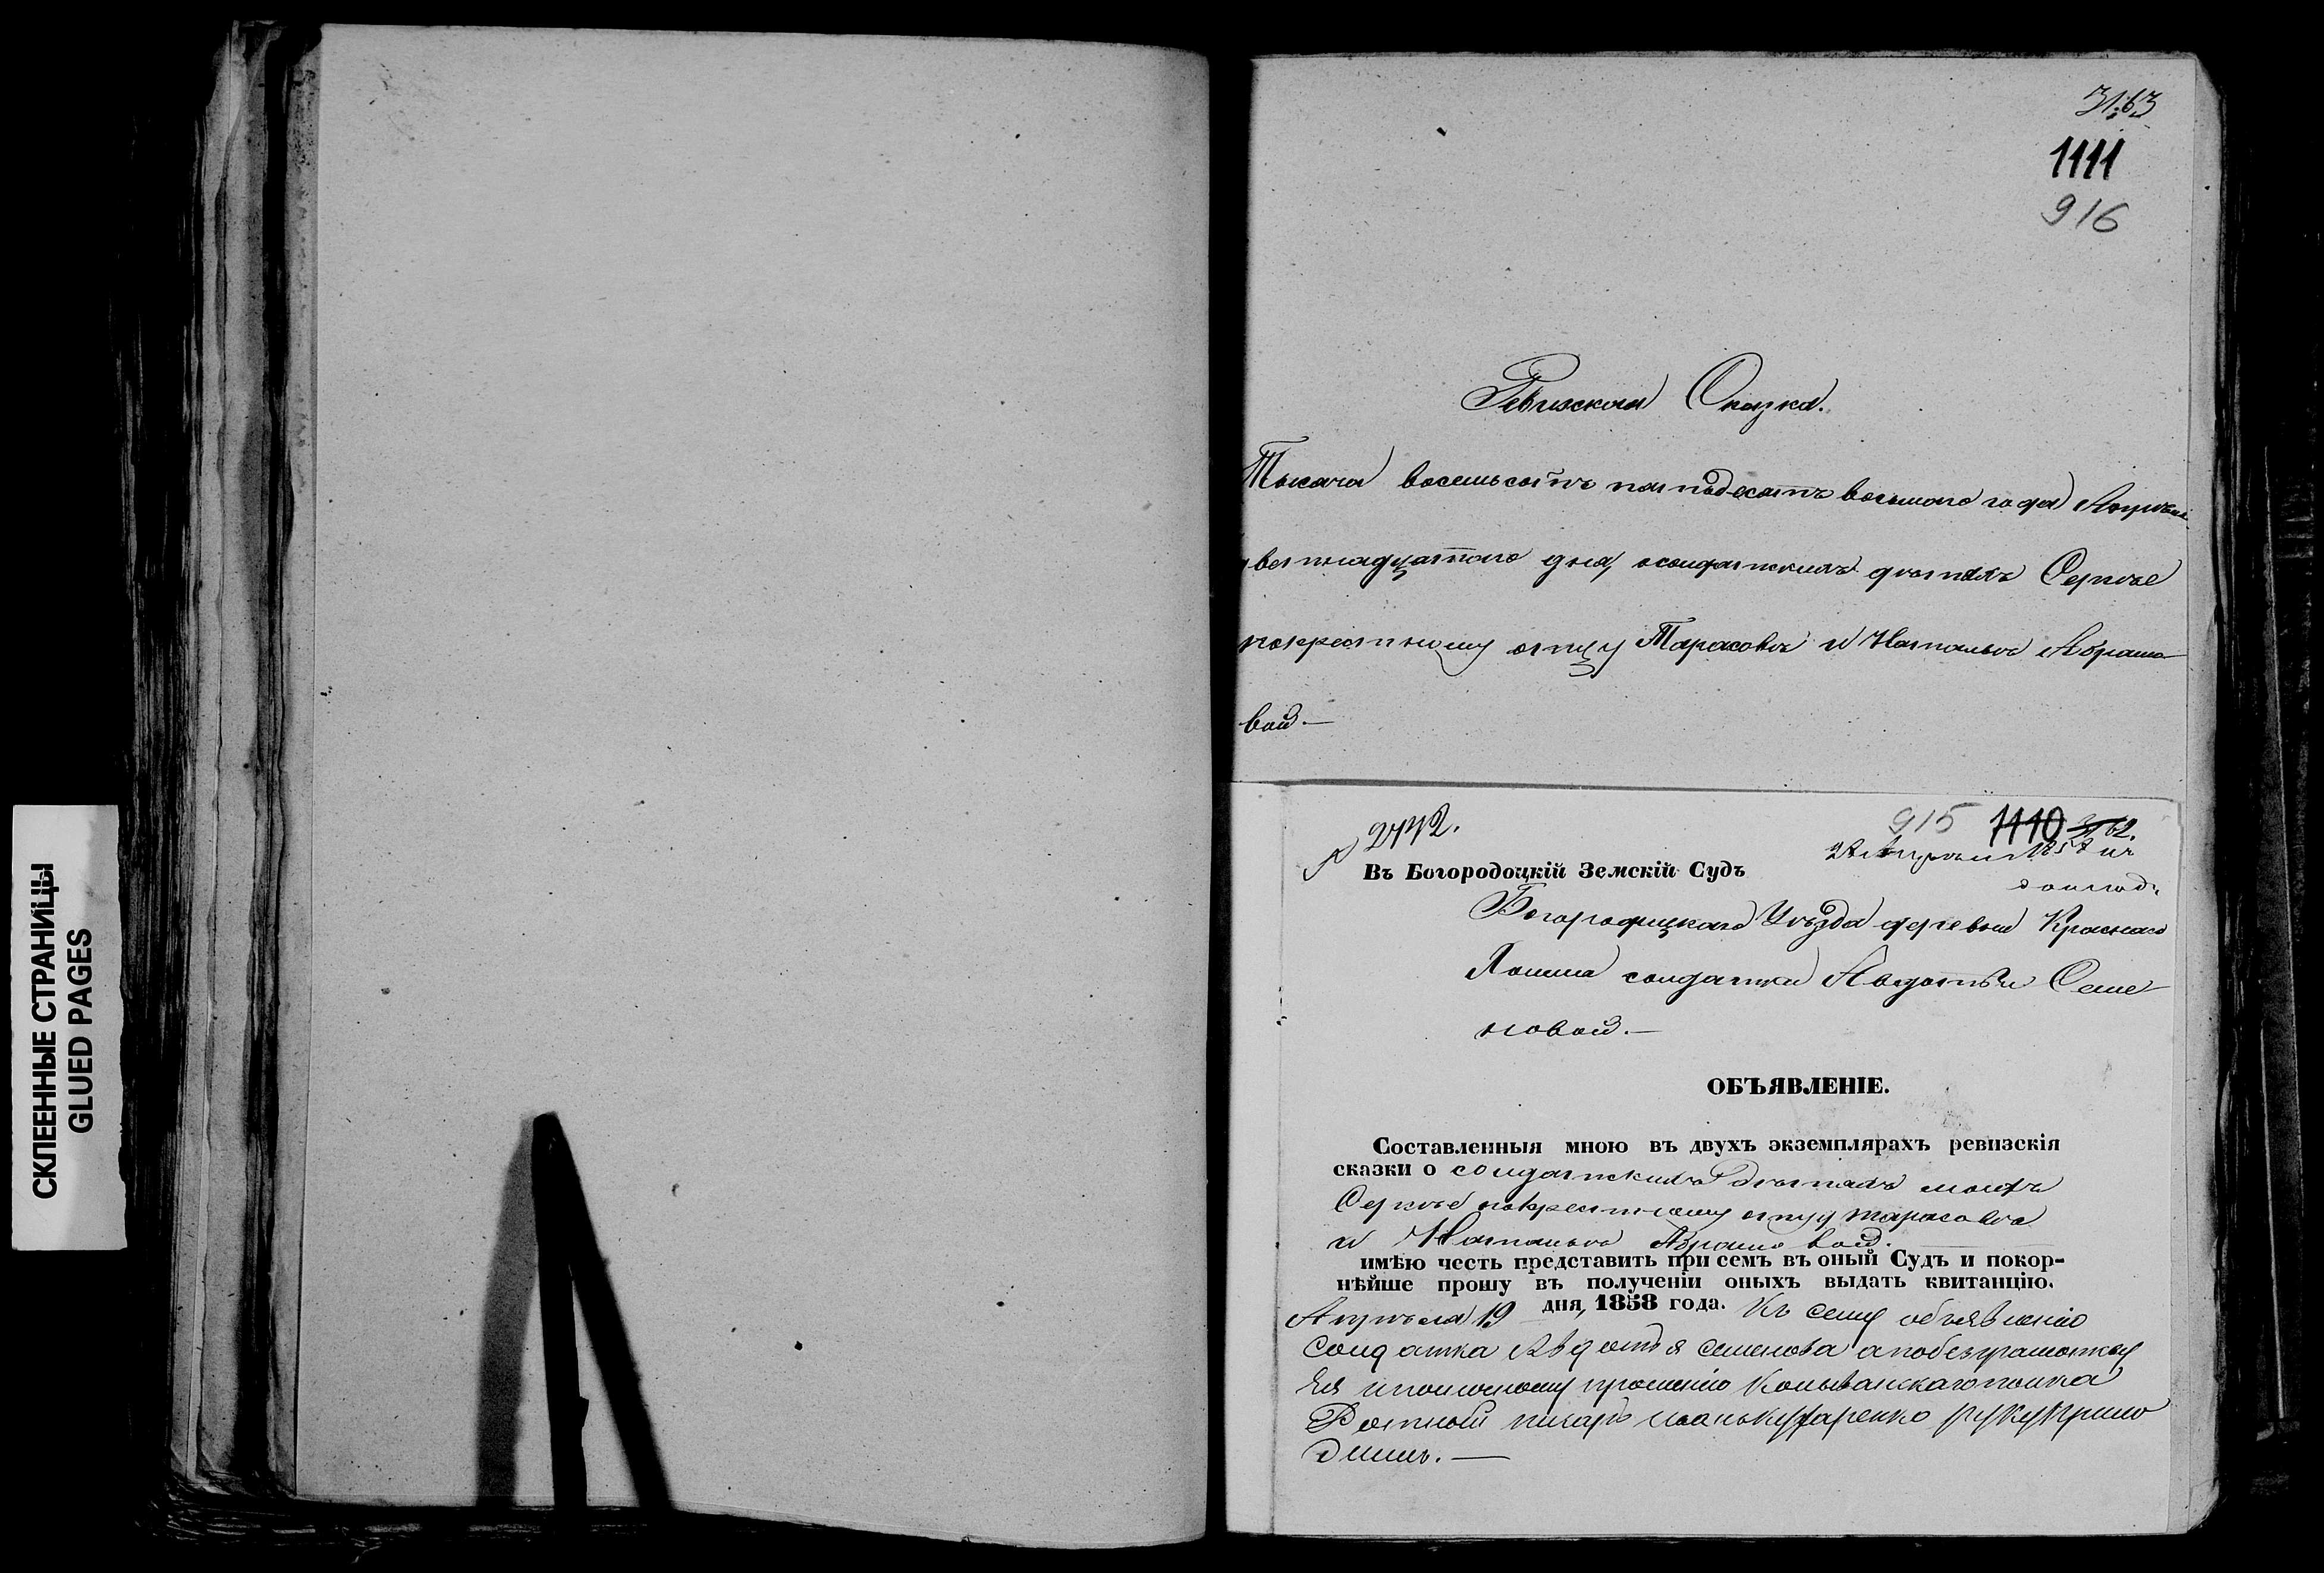 СКЛЕЕННЫЕ СТРАНИЦЫ
GLUED PAGES
3163
1111
916
Ревизская Сказка.
Тысяча восемьсотъ пятьдесятъ восьмаго года Апреля
двенадцатого дня, осолдатскихъ детяхъ Сергѣе
покрестному отцу Тарасовѣ и Натальѣ Абрамо
вой.—
№ 2742.
915 1110 3162.
22 Апреля 1858
Въ Богородоцкій Земскій Судъ
Богородицкаго Уѣзда деревни Краснаго
солдатки Авдотьи Семе
новой.—
ОБЪЯВЛЕНІЕ.
Составленныя мною въ двухъ экземплярахъ ревизскія
сказки о солдатскихъ детяхъ моихъ
Сергѣе покрестному отцу тарасовѣ
и Натальѣ Абрамовой.
имѣю честь представить при семъ въ оный Судъ и покор-
нѣйше прошу въ полученіи оныхъ выдать квитанцію.
Апреля 19 дня, 1858 года. Къ сему объявленію
Солдатка Авдотья семенова апобезграмотству
Ея иполичному прошенію Колыванскагополка
Ротный писарь руку прило
жилъ.—